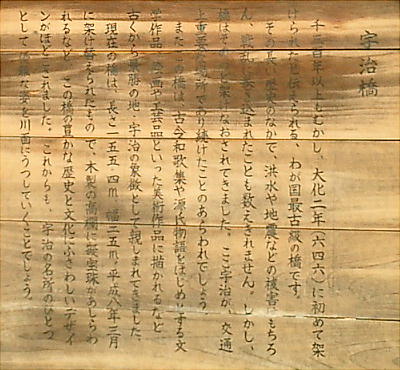 宇治橋
千三百年以上もむかし、大化二年(六四六)に初めて架
けられたと伝えられる、わが国最古級の橋です。
その長い歴史のなかで、洪水や地震などの被害はもちろ
ん、戦乱に巻き込まれたことも数えきれません。しかし、
橋はそのたびに架けなおされてきました。ここ宇治が、交通
上重要な場所であり続けたことのあらわれでしょう。
また、この橋は、古今和歌集や源氏物語をはじめとする文
学作品、絵画や工芸品といった美術作品に描かれるなど
古くから景勝の地・宇治の象徴として親しまれてきました
現在の橋は、長さ一五五.四m、幅二五m。平成八年三月
に架け替えられたもので、木製の高欄に擬宝珠があしらわ
れるなど、この橋の豊かな歴史と文化にふさわしいデザイ
ンがほどこされました。これからも、宇治の名所のひとつ
として優雅な姿を川面にうつしていくことでしょう。